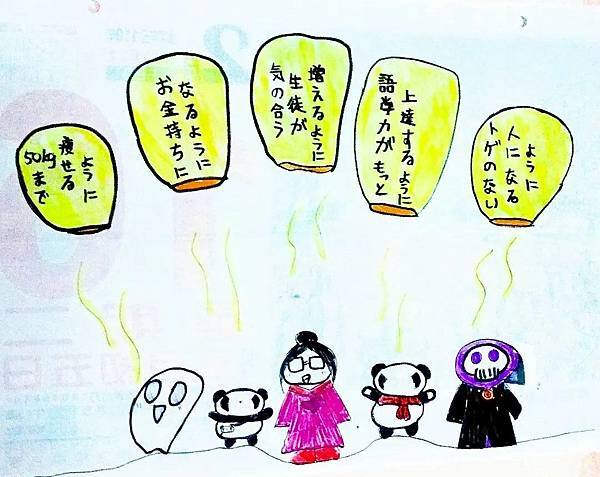 50kgまで
痩せる
ように
お金持ちに
なるように
気の合う
生徒が
増えるように
語学力がもっと
上達するように
トゲのない
人になる
ように